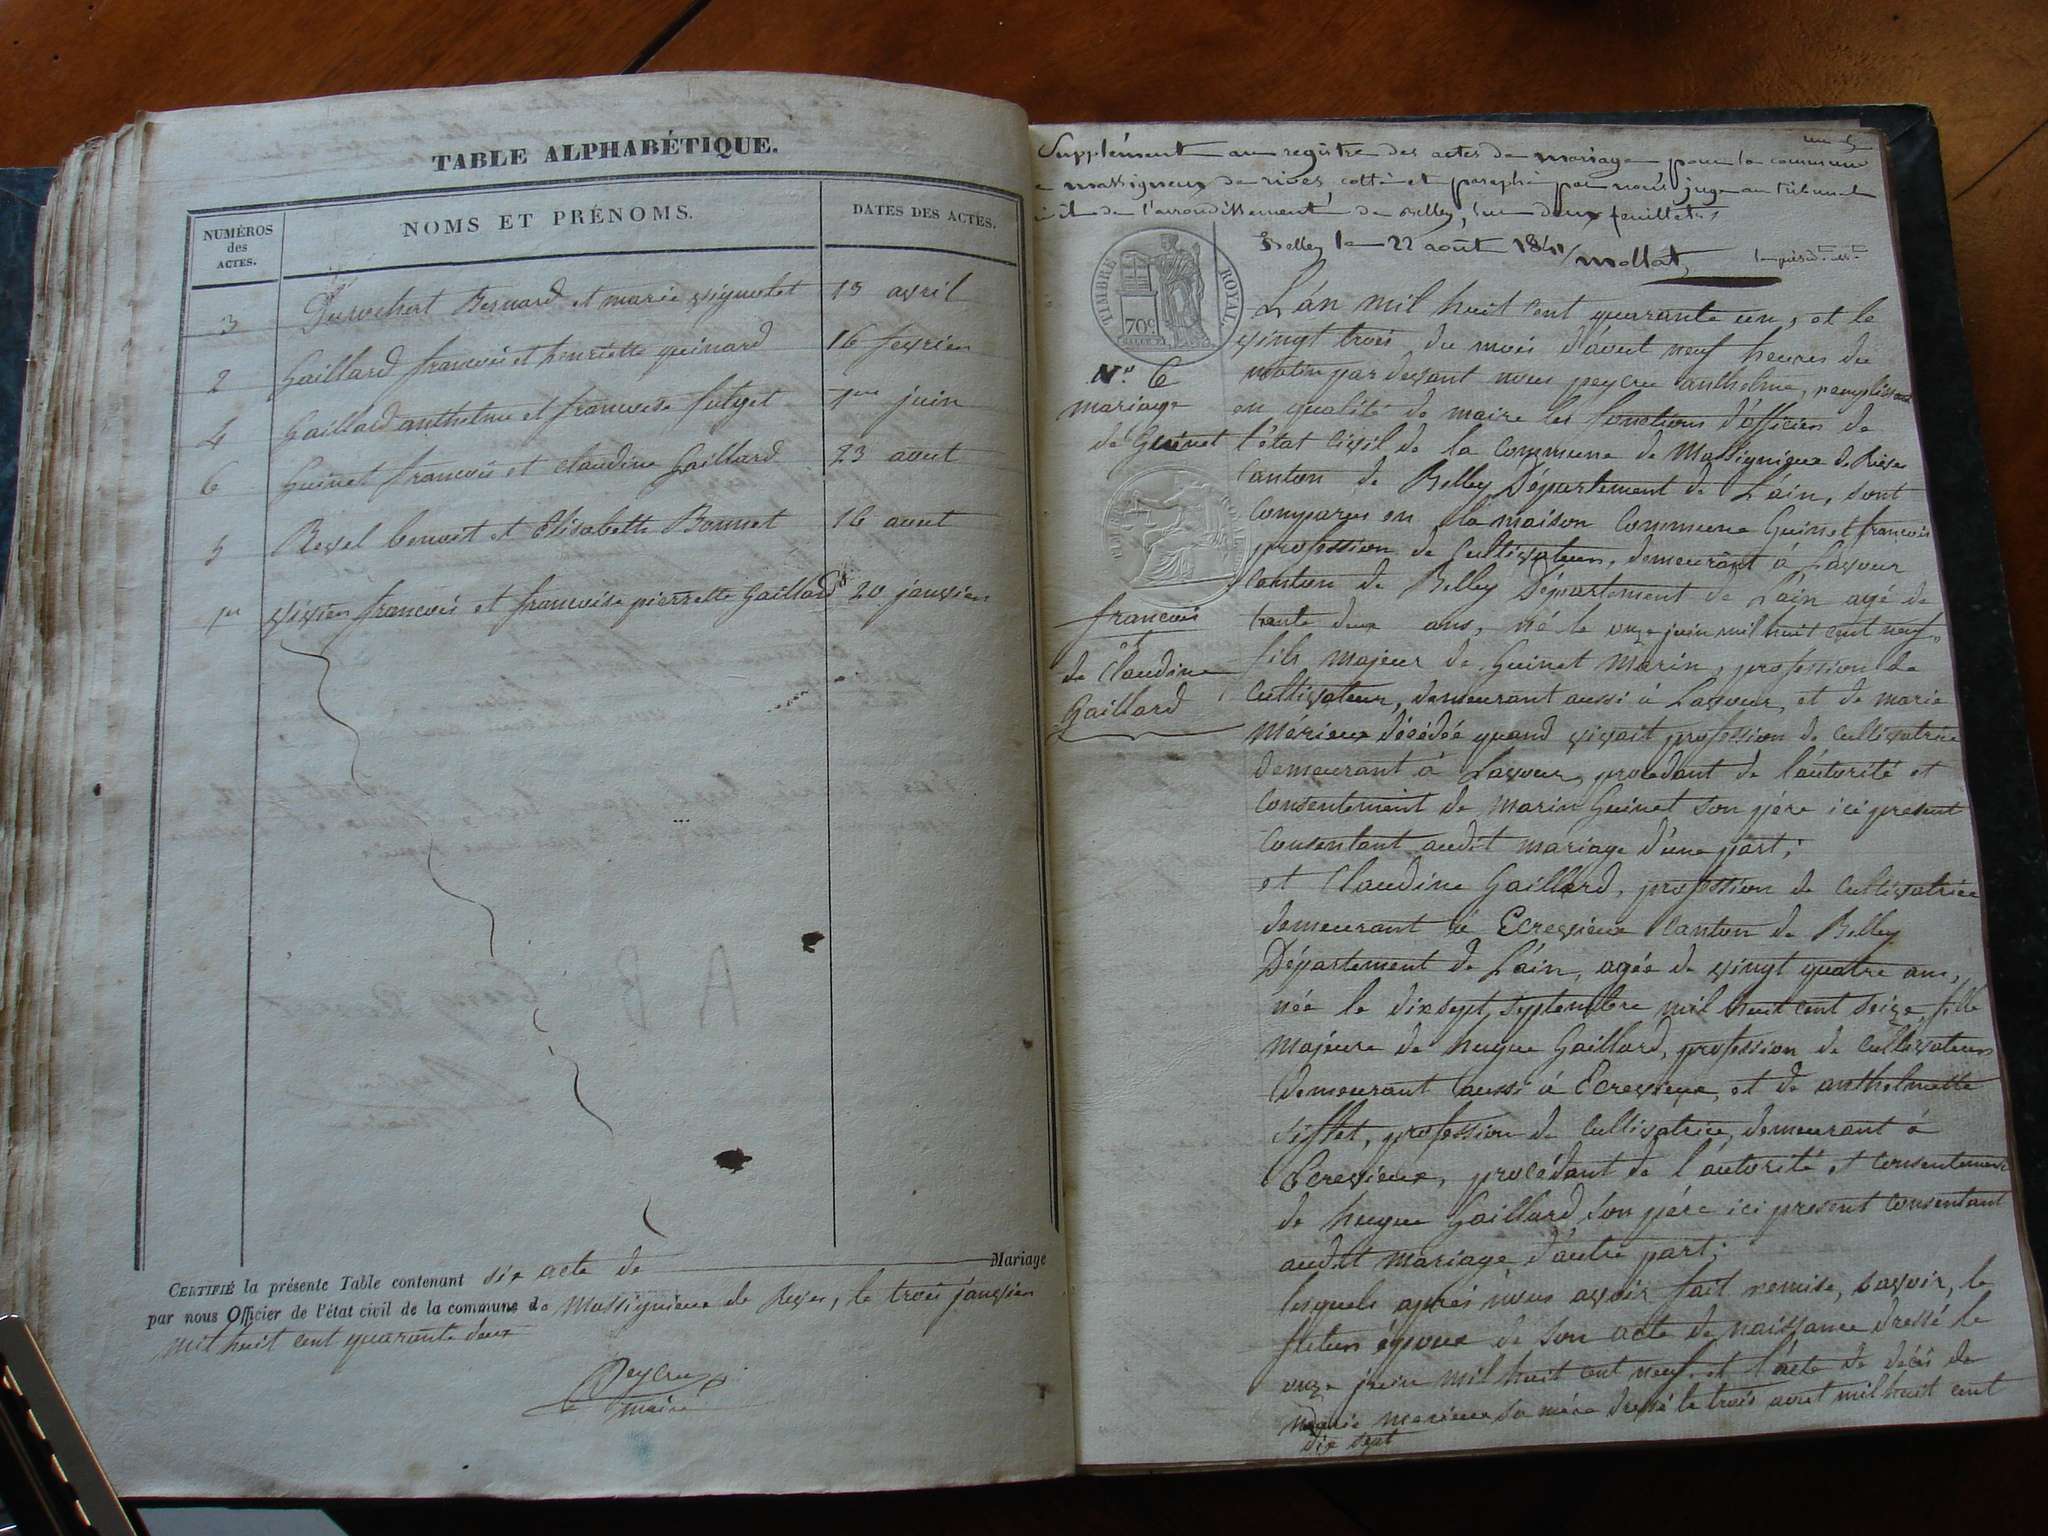 TABLE ALPHABÉTIQUE.
NUMÉROS
des
ACTES.
NOMS ET PRÉNOMS.
DATES DES ACTES.
3 Bernard et marie vignolet 13 avril
2 Gaillard francois et henriette guinard 16 fevrier
4 Gaillard anthelme et francoise 1er juin
6 Guinet francois et claudine Gaillard 23 aout
5 Revel benoit et Elisabette Bonnet 16 aout
1er vivien francois et francoise pierrette Gaillard 20 janvier
CERTIFIÉ la présente Table contenant six acte de Mariage
par nous Officier de l'état civil de la commune de Massignieux de Rives, le trois janvier
mil huit cent quarante deux
Peycru
maire
Supplément au registre des actes de mariage pour la commune
massignieux de rives, cotté et paraphé par nous juge au tribunal
de l'arrondissement de Belley, sur deux feuillets
Belley le 22 août 1841 Mollat
TIMBRE ROYAL
70c
No. 6
mariage
de Guinet
francois
et
de Claudine
Gaillard
L'an mil huit cent quarante un, et le
vingt trois du mois d'aout neuf heures du
matin par devant nous peycru anthelme, remplissant
en qualité de maire les fonctions d'officier de
l'état civil de la commune de Massignieux de Rives
canton de Belley Département de L'ain, sont
comparus en la maison commune Guinet francois
profession de Cultivateur, demeurant à Lavour
canton de Belley Département de L'ain agé de
trente deux ans, né le onze juin mil huit cent neuf,
fils majeur de Guinet Marin, profession de
cultivateur, demeurant aussi à Lavour, et de marie
Mérieux décédée quand vivait profession de cultivatrice
demeurant à Lavour, procedant de l'autorité et
consentement de Marin Guinet son père ici présent
consentant audit mariage d'une part;
et Claudine Gaillard, profession de Cultivatrice
demeurant à Ecrevieux canton de Belley
Département de L'ain, agée de vingt quatre ans,
née le dix sept septembre mil huit cent seize, fille
majeure de hugue Gaillard, profession de Cultivateur
demeurant aussi à Ecrevieux, et de anthelmette
sifflet, profession de Cultivatrice, demeurant à
Ecrevieux, procédant de l'autorité et consentement
de hugue Gaillard, son père ici present consentant
audit mariage d'autre part;
lesquels après nous avoir fait remise, savoir, le
futur époux de son acte de naissance dressé le
onze juin mil huit cent neuf, et l'acte de décès de
marie merieux sa mère dressé le trois aout mil huit cent
dix sept